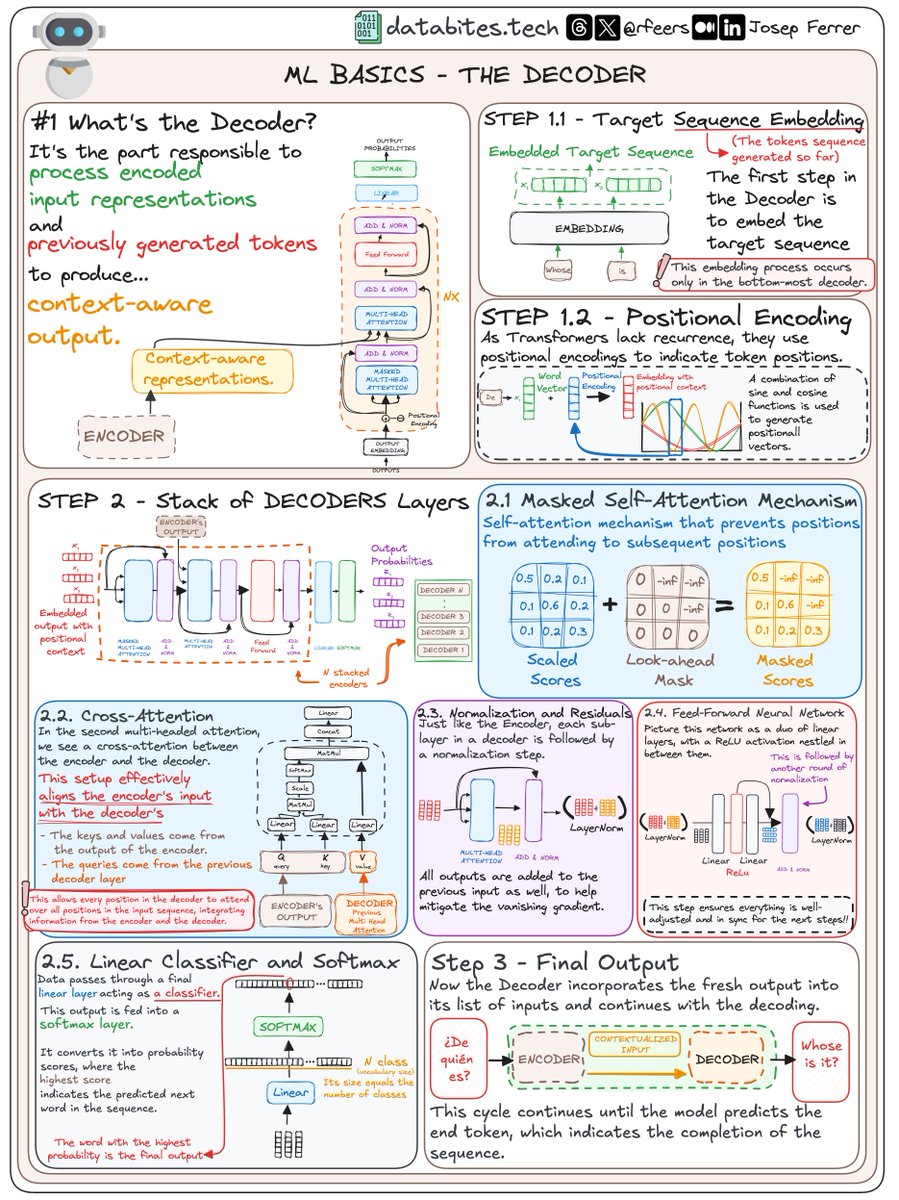 011
0101
001
databites.tech
@rfeers
in
Josep Ferrer
ML BASICS - THE DECODER
#1 What's the Decoder?
It's the part responsible to
process encoded
input representations
and
previously generated tokens
to produce...
context-aware
output.
Context-aware
representations.
ENCODER
OUTPUT
PROBABILITIES
SOFTMAX
LINEAR
ADD & NORM
Feed Forward
ADD & NORM
MULTI-HEAD
ATTENTION
NX
ADD & NORM
MASKED
MULTI-HEAD
ATTENTION
Positional
Encoding
OUTPUT
EMBEDDING
OUTPUTS
STEP 1.1 - Target Sequence Embedding
(The tokens sequence
generated so far)
Embedded Target Sequence
EMBEDDING
Whose
is
The first step in
the Decoder is
to embed the
target sequence
This embedding process occurs
only in the bottom-most decoder.
STEP 1.2 - Positional Encoding
As Transformers lack recurrence, they use
positional encodings to indicate token positions.
De
Word
Vector
+
Positional
Encoding
Embedding with
positional context
A combination of
sine and cosine
functions is used
to generate
positionall
vectors.
STEP 2 - Stack of DECODERS Layers
ENCODER's
OUTPUT
Embedded
output with
positional
context
MASKED
MULTI-HEAD
ATTENTION
ADD &
NORM
MULTI-HEAD
ATTENTION
ADD
&
NORM
Feed
Forward
ADD
&
NORM
LINEAR
SOFTMAX
Output
Probabilities
DECODER N
DECODER 3
DECODER 2
DECODER 1
N stacked
encoders
2.1 Masked Self-Attention Mechanism
Self-attention mechanism that prevents positions
from attending to subsequent positions
0.5 0.2 0.1
0.1 0.6 0.2
0.1 0.2 0.3
Scaled
Scores
+
0 -inf -inf
0 0 -inf
0 0 0
Look-ahead
Mask
=
0.5 -inf -inf
0.1 0.6 -inf
0.1 0.2 0.3
Masked
Scores
2.2. Cross-Attention
In the second multi-headed attention,
we see a cross-attention between
the encoder and the decoder.
This setup effectively
aligns the encoder's input
with the decoder's
- The keys and values come from
the output of the encoder.
- The queries come from the previous
decoder layer
This allows every position in the decoder to attend
over all positions in the input sequence, integrating
information from the encoder and the decoder.
Linear
Concat
MatMul
SoftMax
Scale
MatMul
Linear
Linear
Linear
Q
query
K
key
V
value
ENCODER's
OUTPUT
DECODER
Previous
Multi Head
Attention
2.3. Normalization and Residuals
Just like the Encoder, each sub-
layer in a decoder is followed by
a normalization step.
MULTI-HEAD
ATTENTION
ADD & NORM
LayerNorm
All outputs are added to the
previous input as well, to help
mitigate the vanishing gradient.
2.4. Feed-Forward Neural Network
Picture this network as a duo of linear
layers, with a ReLU activation nestled in
between them.
This is followed by
another round of
normalization
LayerNorm
Linear
Linear
ReLu
ADD & NORM
LayerNorm
This step ensures everything is well-
adjusted and in sync for the next steps!!
2.5. Linear Classifier and Softmax
Data passes through a final
linear layer acting as a classifier.
This output is fed into a
softmax layer.
It converts it into probability
scores, where the
highest score
indicates the predicted next
word in the sequence.
The word with the highest
probability is the final output
SOFTMAX
Linear
N class
(vocabulary size)
Its size equals the
number of classes
Step 3 - Final Output
Now the Decoder incorporates the fresh output into
its list of inputs and continues with the decoding.
¿De
quién
es?
ENCODER
CONTEXTUALIZED
INPUT
DECODER
Whose
is it?
This cycle continues until the model predicts the
end token, which indicates the completion of the
sequence.